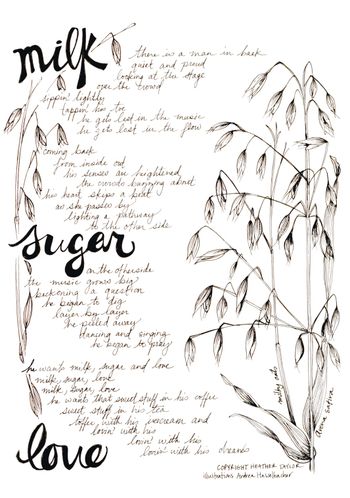 milk
there is a man in back
quiet and proud
looking at the stage
over the crowd
sippin' lightly
tappin' his toe
he gets lost in the music
he gets lost in the flow
coming back
from inside out
his senses are heightened
the crowds buzzing about
his heart skips a beat
as she passes by
lighting a pathway
to the other side
sugar
on the otherside
the music grows big
beckoning a question
he began to dig
layer by layer
he pieled away
dancing and singing
he began to pray
he wants milk, sugar and love
milk, sugar, love
milk, sugar, love
he wants that sweet stuff in his coffee
sweet stuff in his tea
toffee with his icecream and
lovin' with his
lovin' with his
lovin' with his dreams
love
milky oats
avena sativa
COPYRIGHT HEATHER TAYLOR
illustrations Andrea